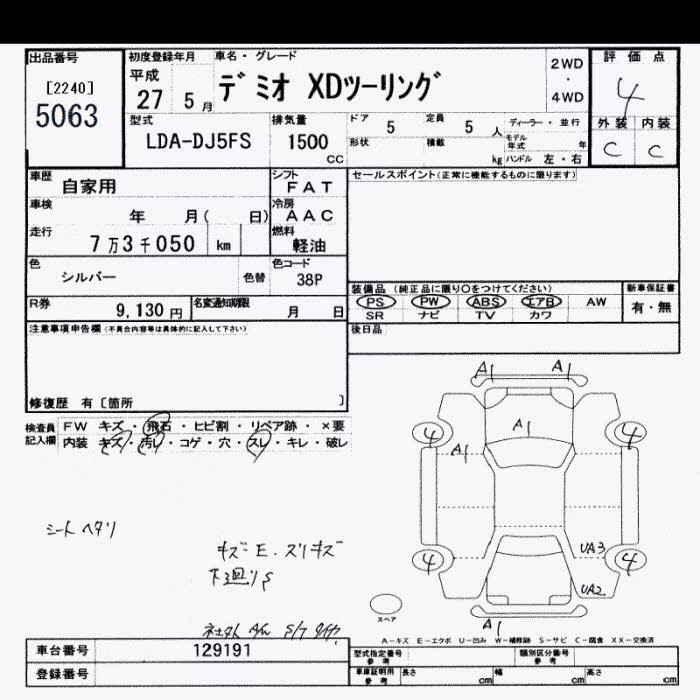 出品番号 初度登録年月 車名・グレード 2WD ・ 4WD 評価点
[2240] 平成 デミオ XDツーリング 4
5063 27 5月
型式 排気量 ドア 5 定員 5 人 ディーラー・並行 外装 内装
LDA-DJ5FS 1500 CC 形状 積載 kg モデル年式 年 C C
ハンドル 左・右
車歴 自家用 シフト FAT セールスポイント(正常に機能するものに限ります)
車検 年 月( 日) 冷房 AAC
走行 7万3千050 km 燃料 軽油
色 シルバー 色替 色コード 38P
装備品 (純正品に限り○をつけてください) 新車保証書
PS PW ABS エアB AW 有・無
SR ナビ TV カワ
R券 9,130円 名変通知期限 月 日
後日品
注意事項申告欄(不具合内容等は具体的に記入して下さい)
修復歴 有〔箇所 〕
検査員記入欄 FW キズ・飛石・ヒビ割・リペア跡・×要
内装 キズ・汚レ・コゲ・穴・スレ・キレ・破レ
A1 A1
A1
4 4
A1
シートヘタリ
キズE.スリキズ
下廻りS
UA3
4 4
UA2
スペア
A1
A-キズ E-エクボ U-凹み W-補修跡 S-サビ C-腐食 XX-交換済
車台番号 129191 型式指定番号 参考 類別区分番号 参考
登録番号 車庫証明用 参考 長さ cm 幅 cm 高さ cm